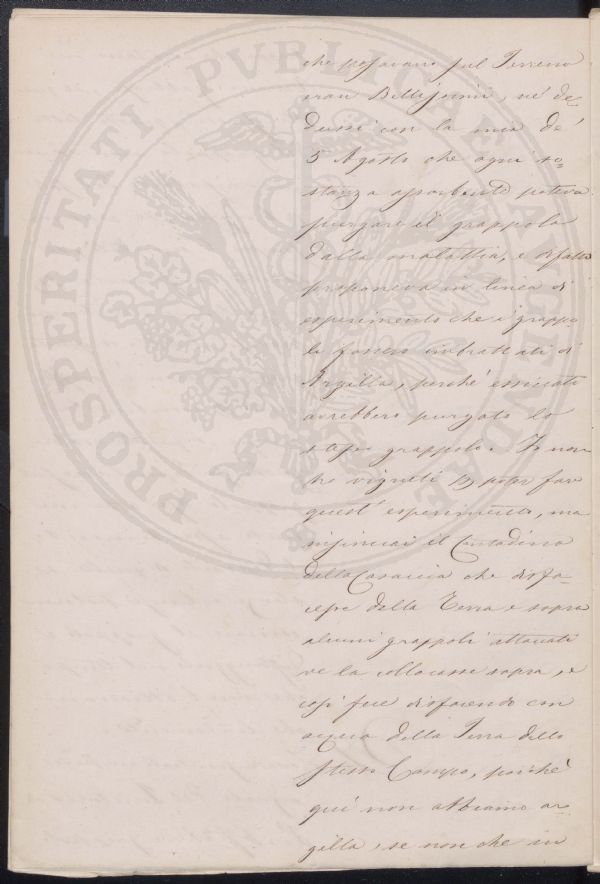 che posavano sul Terreno
eran Bellissimi, né de-
dussi con la mia de'
5 Agosto che ogni so-
stanza assorbente poteva
purgare il grappolo
dalla malattia, e difatto
proponeva in linea di
esperimento che i grappo-
li fossero imbrattati di
Argilla, perché essiccata
avrebbero purgato lo
stesso grappolo. Io non
ho vigneti per poter far
quest' esperimento, ma
insinuai il Contadino
della Casaccia che disfa-
cesse della Terra e sopra
alcuni grappoli attaccati
ve la collocasse sopra, e
così fece disfacendo con
acqua della Terra dello
stesso Campo, poiché
qui non abbiamo ar-
gilla, se non che in
PROSPERITATI PUBLICAE AUGENDAE